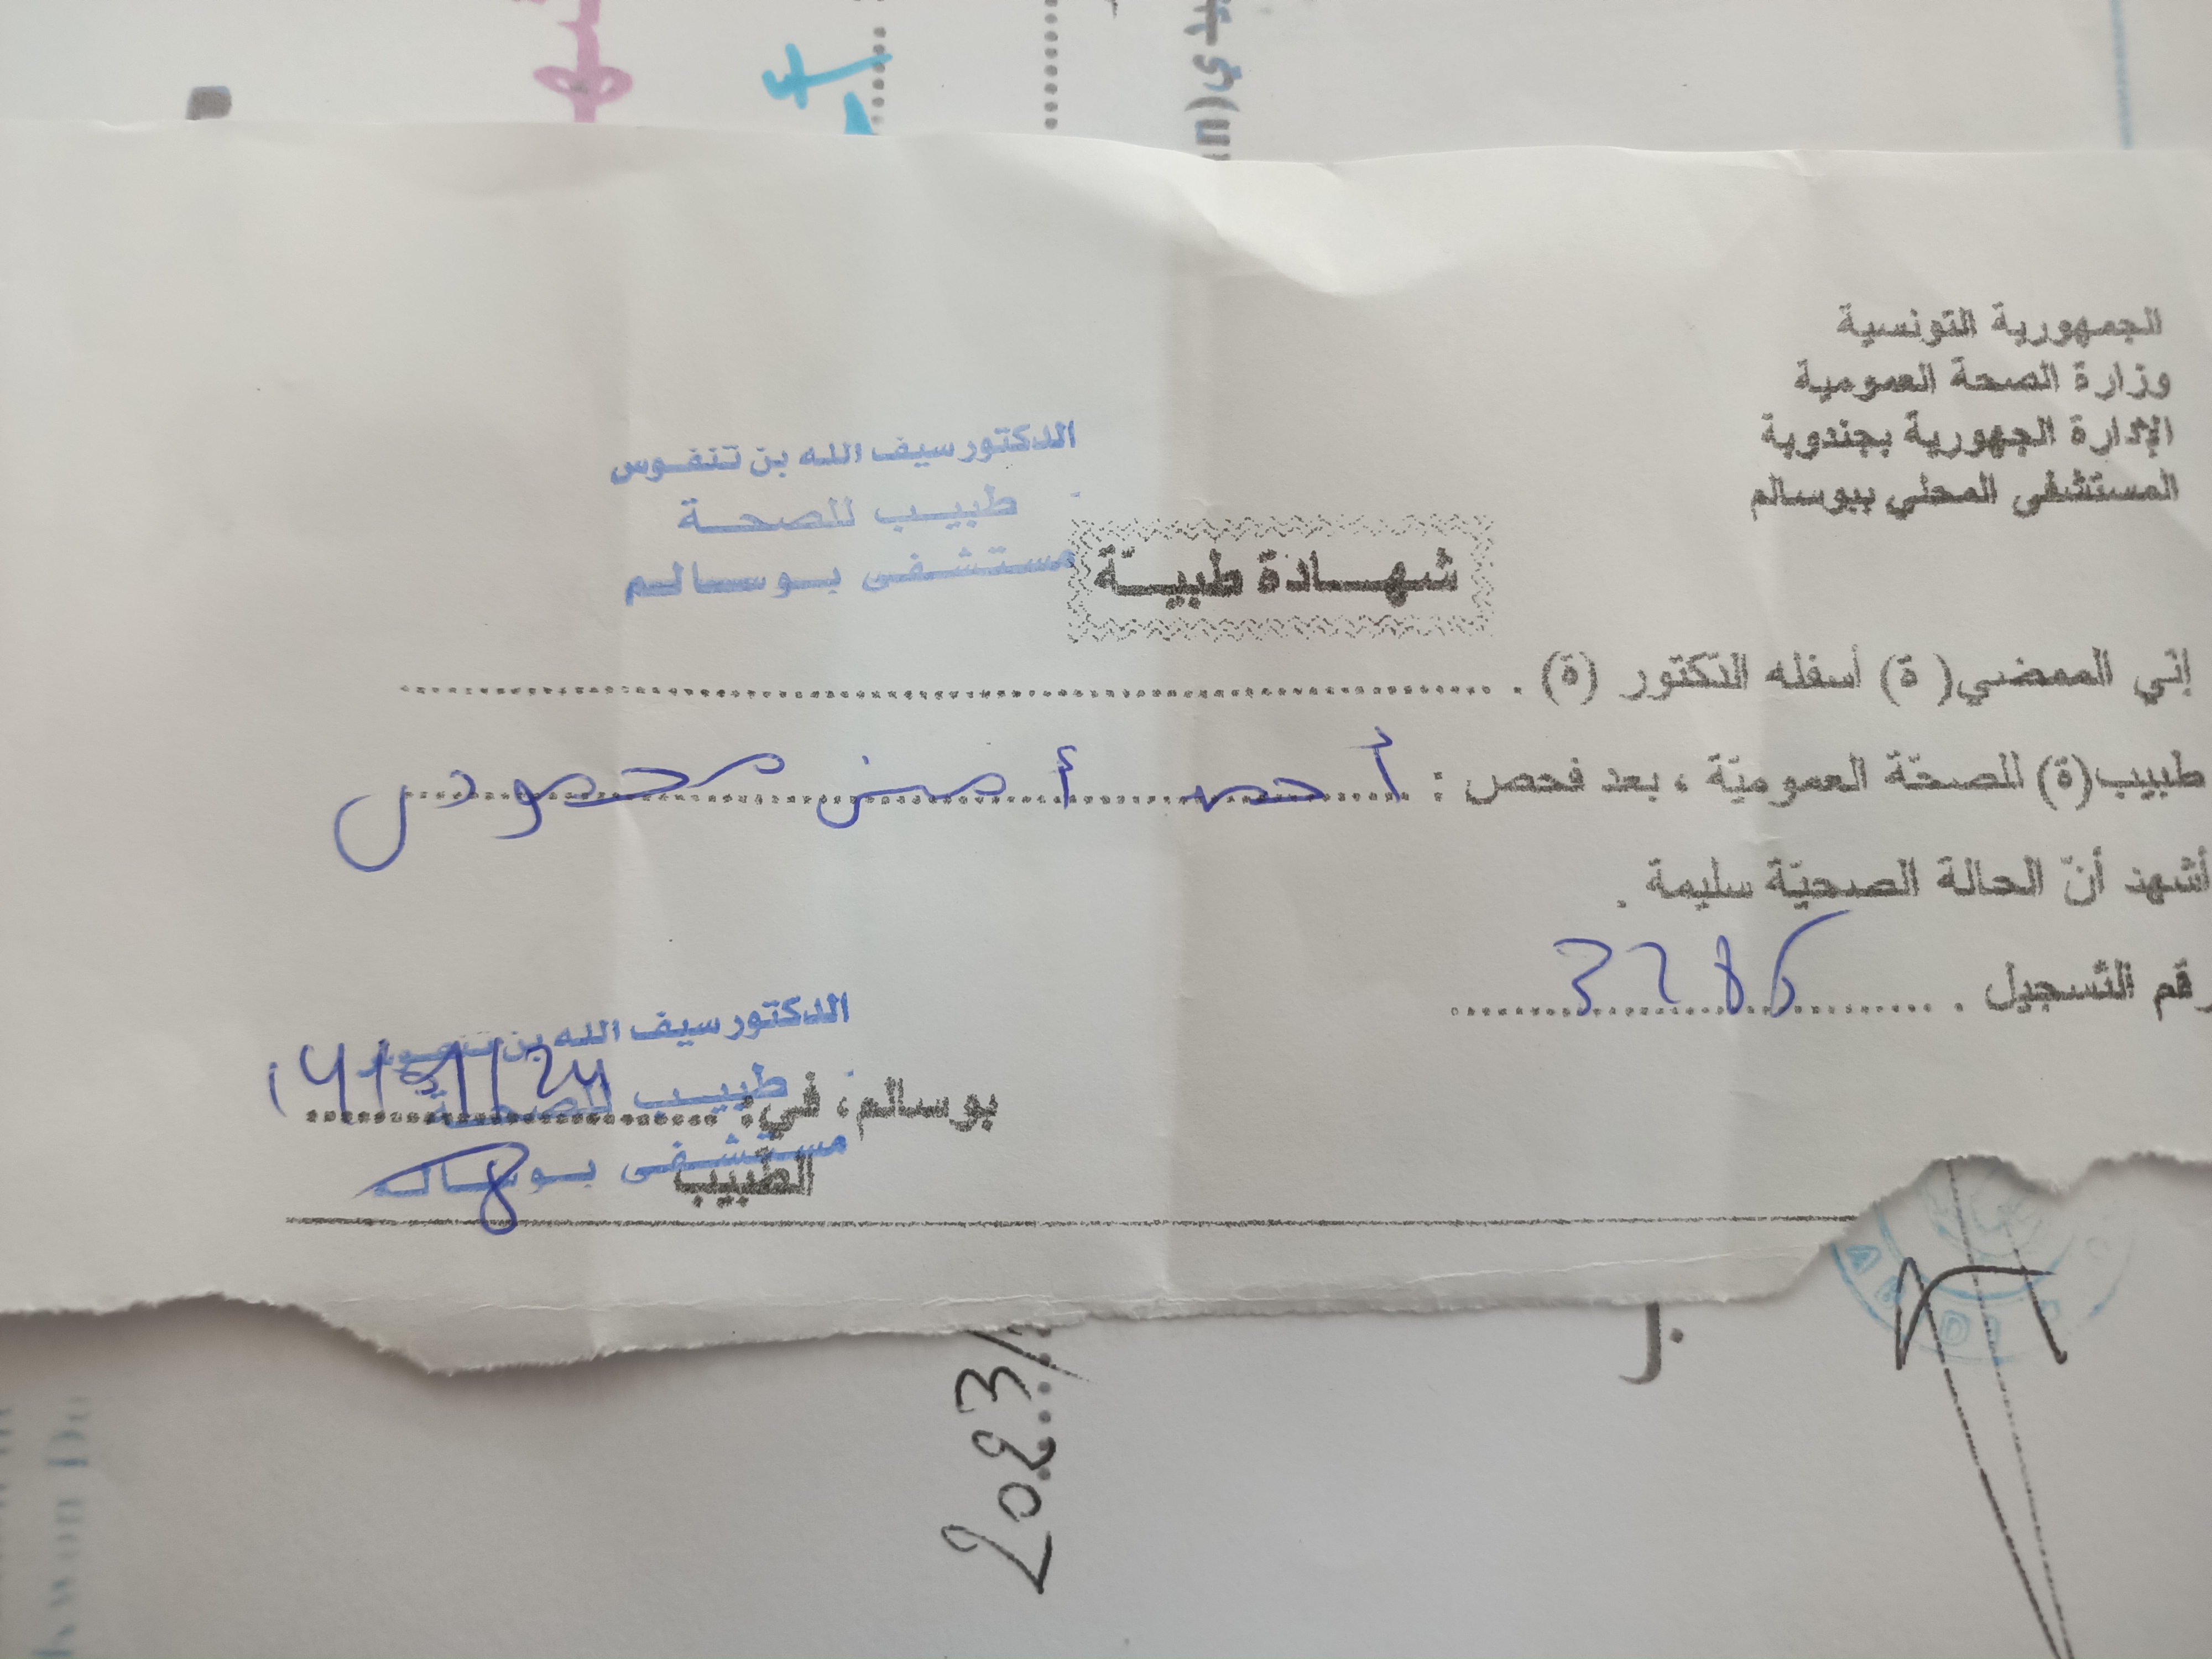 الجمهورية التونسية
وزارة الصحة العمومية
الإدارة الجهورية بجندوبة
المستشفى المحلي ببوسالم
الدكتور سيف الله بن تنفوس
طبيب للصحة
مستشفى بوسالم
شهادة طبيّة
إني الممضي( ة) أسفله الدكتور (ة) .
طبيب(ة) للصحّة العموميّة ، بعد فحص : أحمد أمين
أشهد أنّ الحالة الصحيّة سليمة .
رقم التّسجيل . 3286
الدكتور سيف الله بن تنفوس
طبيب للصحة
مستشفى بوسالم
بوسالم، في:
الطّبيب
2023/
kwon Do